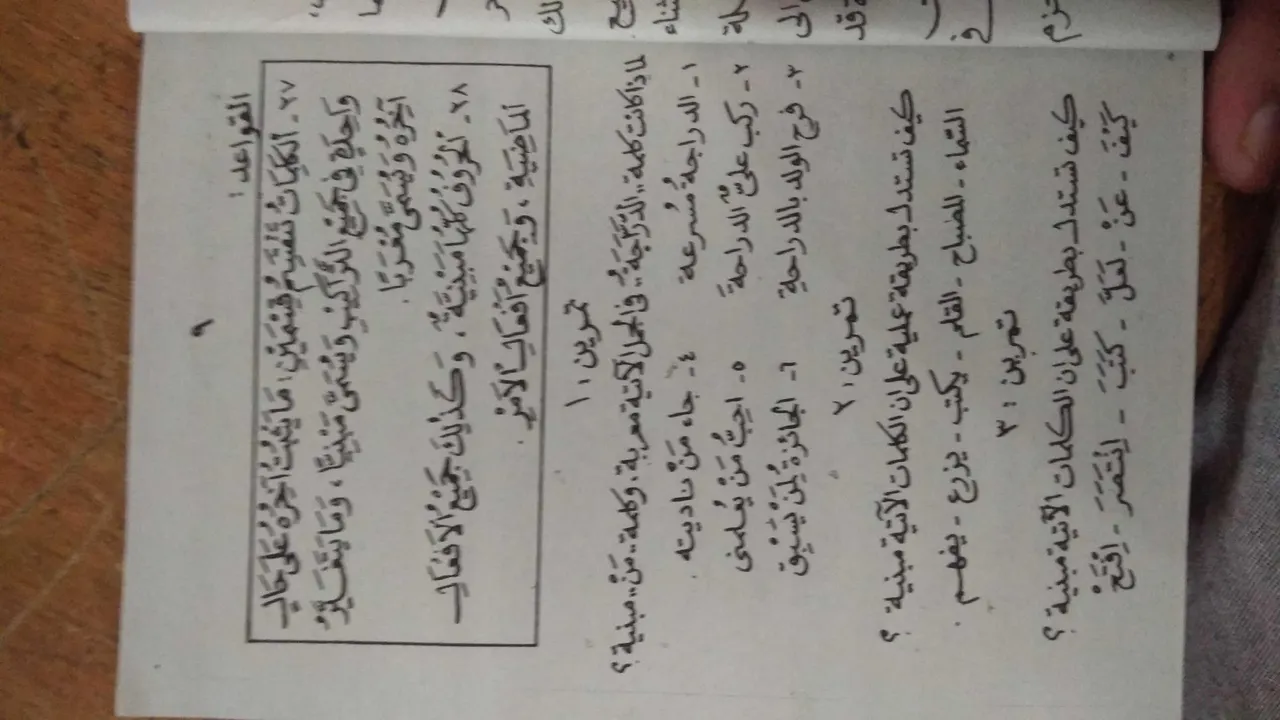 ٩
القواعد:
٢٧ - اَلْكَلِمَاتُ تَنْقَسِمُ قِسْمَيْنِ: مَا يَثْبُتُ آخِرُهُ عَلَى حَالٍ
وَاحِدَةٍ فِي جَمِيْعِ التَّرَاكِيْبِ وَيُسَمَّى مَبْنِيًّا، وَمَا يَتَغَيَّرُ
آخِرُهُ وَيُسَمَّى مُعْرَبًا.
٢٨ - اَلْحُرُوْفُ كُلُّهَا مَبْنِيَّةٌ، وَكَذٰلِكَ جَمِيْعُ الْاَفْعَالِ
الْمَاضِيَةِ، وَجَمِيْعُ اَفْعَالِ الْاَمْرِ.
تمرين: ١
لماذا كانت كلمة "الدَّرَّاجَةُ" في الجمل الآتية معربة، وكلمة "مَنْ" مبنية؟
١- الدراجةُ مُسرعة
٤- جاء مَنْ ناديته.
٢- ركب عليٌّ الدراجةَ
٥- احِبُّ مَنْ يُعلمنى
٣- فرح الولد بالدراجةِ
٦- الجائزة لِمَنْ يَسْبِق
تمرين: ٢
كيف تستدل بطريقة عملية على ان الكلمات الآتية مبنية؟
السَّماء - المصباح - القلم - يكتب - يزرع - يفهم.
تمرين: ٣
كيف تستدل بطريقة على ان الكلمات الآتية مبنية؟
كَيْفَ - عَنْ - لَعَلَّ - كَتَبَ - اِنْتَصَرَ - اِفْتَحْ